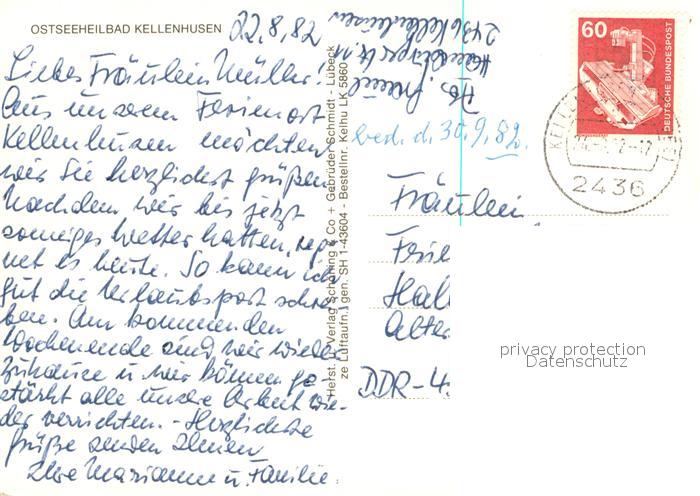 OSTSEEHEILBAD KELLENHUSEN 22.8.82
Liebes Fräulein Müller!
Aus unserem Ferienort
Kellenhusen möchten
wir Sie herzlichst grüßen.
Nachdem wir bis jetzt
sonniges Wetter hatten, reg-
net es heute. So kann ich
gut die Urlaubspost schrei-
ben. Am kommenden
Wochenende sind wir wieder
zuhause u. wir können ge-
stärkt alle unsere Arbeit wie-
der verrichten. - Herzlichste
Grüße senden Ihnen
Ihre Marianne u. Familie.
Herst. u. Verlag Schöning & Co + Gebrüder Schmidt - Lübeck
gen. SH 1-43604 - Bestellnr. Kelhu LK 5860
2436 Kellenhusen
60
DEUTSCHE BUNDESPOST
2436
30.9.82.
Fräulein
Frie
Hal
Alter
DDR-4
privacy protection
Datenschutz